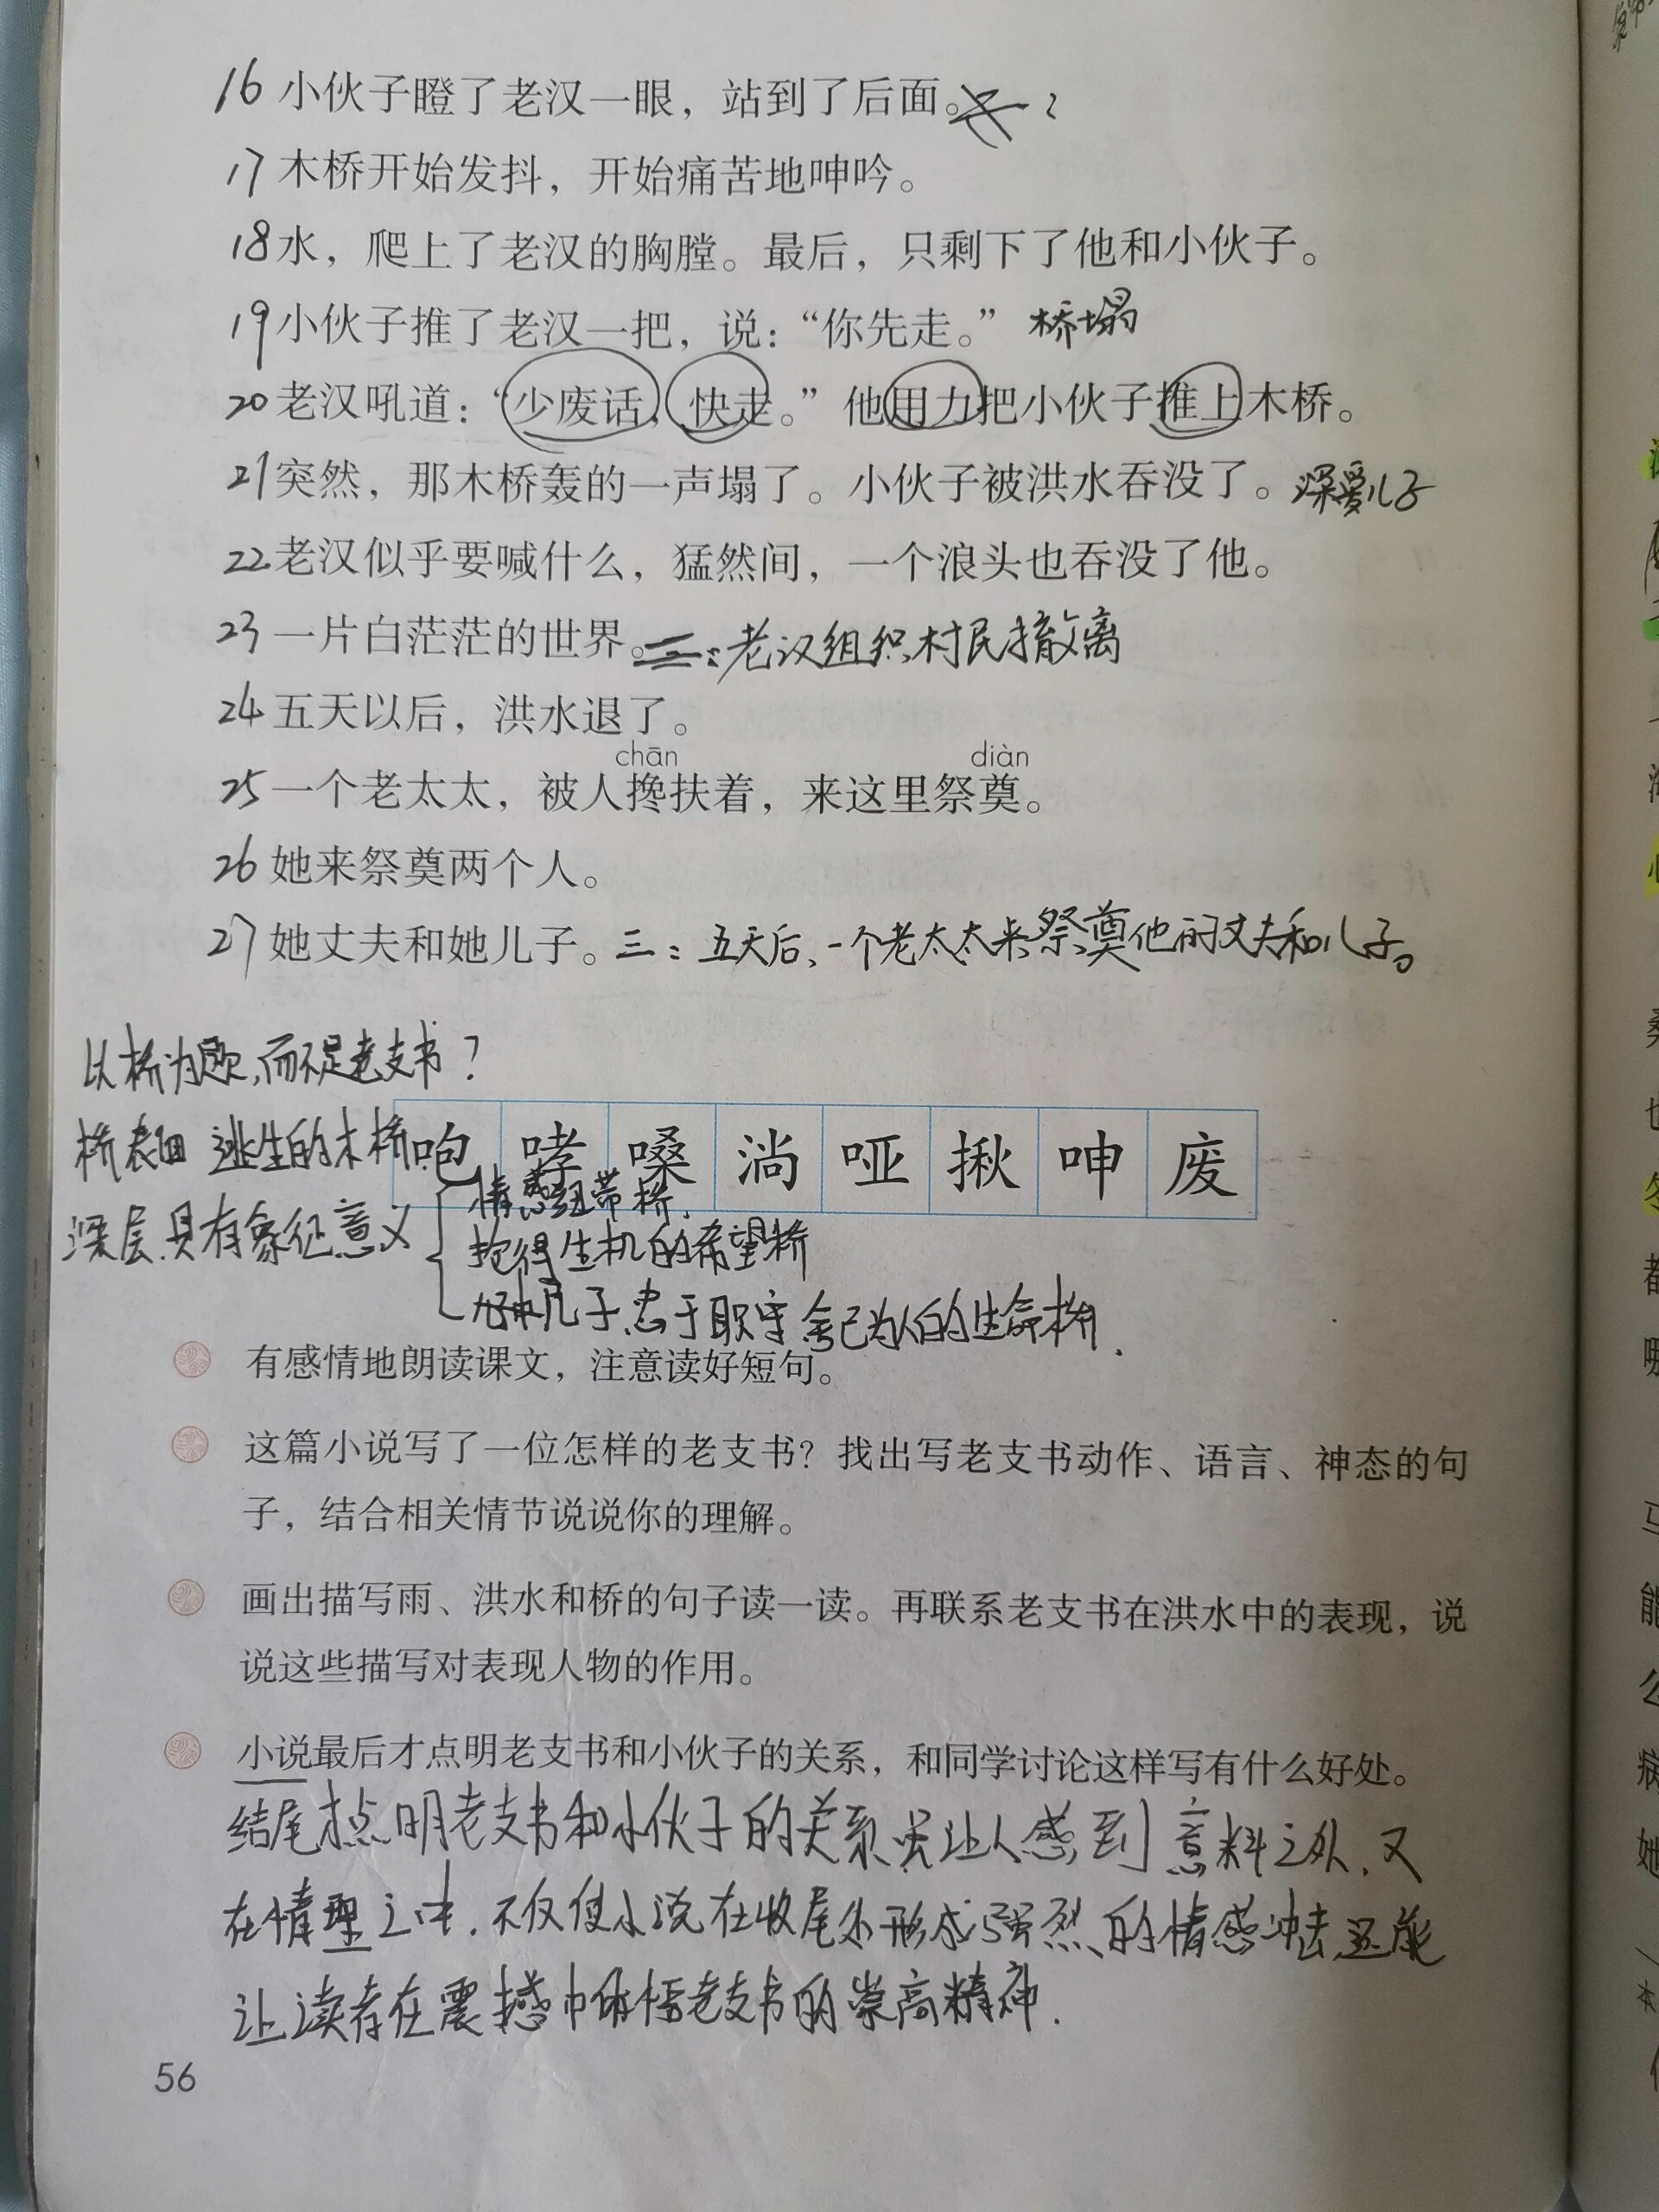 16 小伙子瞪了老汉一眼，站到了后面。
17 木桥开始发抖，开始痛苦地呻吟。
18 水，爬上了老汉的胸膛。最后，只剩下了他和小伙子。
19 小伙子推了老汉一把，说：“你先走。” 桥塌
20 老汉吼道：“少废话，快走。”他用力把小伙子推上木桥。
21 突然，那木桥轰的一声塌了。小伙子被洪水吞没了。 深爱儿子
22 老汉似乎要喊什么，猛然间，一个浪头也吞没了他。
23 一片白茫茫的世界。二：老汉组织村民撤离
24 五天以后，洪水退了。
chān diàn
25 一个老太太，被人搀扶着，来这里祭奠。
26 她来祭奠两个人。
27 她丈夫和她儿子。三：五天后、一个老太太来祭奠他的丈夫和儿子。
以桥为题，而不是老支书？
桥表面 逃生的木桥
咆 哮 嗓 淌 哑 揪 呻 废
情感纽带桥
深层具有象征意义
抢得生机的希望桥
儿子忠于职守舍己为人的生命桥.
有感情地朗读课文，注意读好短句。
这篇小说写了一位怎样的老支书？找出写老支书动作、语言、神态的句
子，结合相关情节说说你的理解。
画出描写雨、洪水和桥的句子读一读。再联系老支书在洪水中的表现，说
说这些描写对表现人物的作用。
小说最后才点明老支书和小伙子的关系，和同学讨论这样写有什么好处。
结尾才点明老支书和小伙子的关系虽让人感到意料之外，又
在情理之中.不仅使小说在收尾处形成强烈的情感冲击,还能
让读者在震撼中体悟老支书的崇高精神.
56